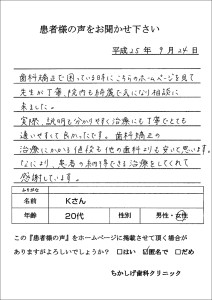 患者様の声をお聞かせ下さい
平成25年 9月24日
歯科矯正で困っている時にこちらのホームページを見て
先生が丁寧、院内も綺麗で気になり相談に
来ました。
実際、説明も分かりやすく治療にも丁寧でとても
通いやすくて良かったです。歯科矯正の
治療にかかる値段も他の歯科よりも安いと思います。
なにより、患者の納得できる治療をしてくれて
感謝しています。
ふりがな
名前 Kさん
年齢 20代 性別 男性・女性
この『患者様の声』をホームページに掲載させて頂く場合が
ありますがよろしいでしょうか? □はい ☑匿名で □だめ
ちかしげ歯科クリニック